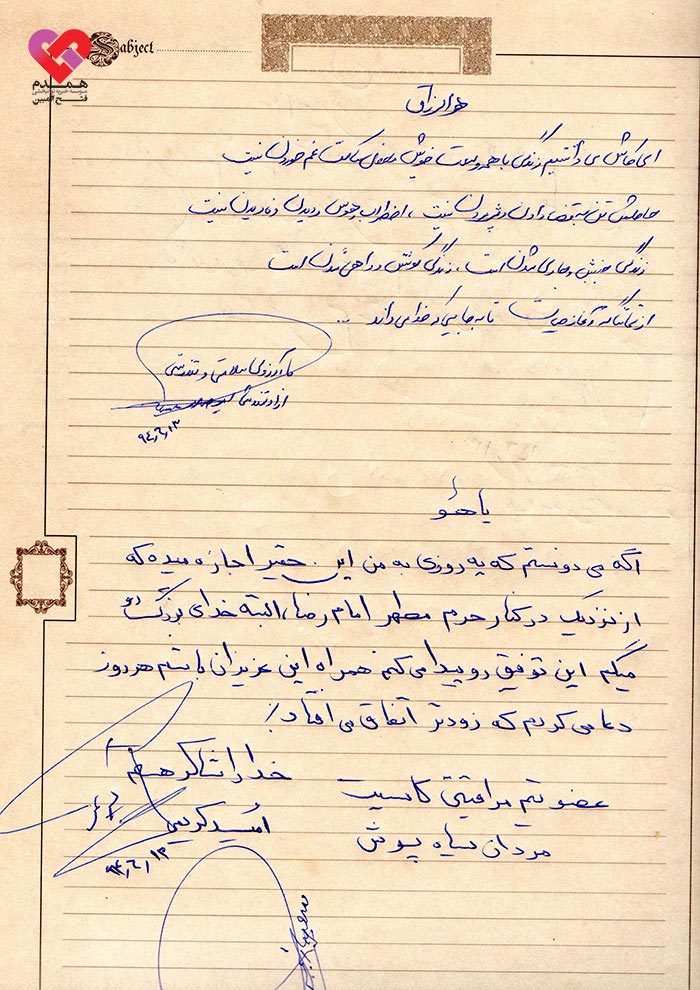 Subject
همدم
فتح المبین
هوالرزاق
ای کاش می دانستیم زندگی با همه وسعت خویش محفل ساکت غم خوردن نیست
حاصلش تن به قضا دادن و پژمردن نیست ، اضطراب و هوس دیدن و نادیدن نیست
زندگی جنبش و جاری شدن است ، زندگی کوشش و راهی شدن است
از تماشاگه آغاز حیات تا به جایی که خدا می داند ...
با آرزوی سلامتی و تندرستی
ارادتمند شما
۹۴,۶,۱۳
یا هو
اگه می دونستم که یه روزی به من این حقیر اجازه میده که
از نزدیک در کنار حرم مطهر امام رضا ، البته خدای بزرگ رو
میگم این توفیق رو پیدا می کنم همراه این عزیزان باشم هر روز
دعا می کردم که زودتر اتفاق می افتاد !
خدا را شاکر هستم
عضو تیم مراقبتی کاسیت
مردان سیاه پوش
امید کریمی
۹۴,۶,۱۳